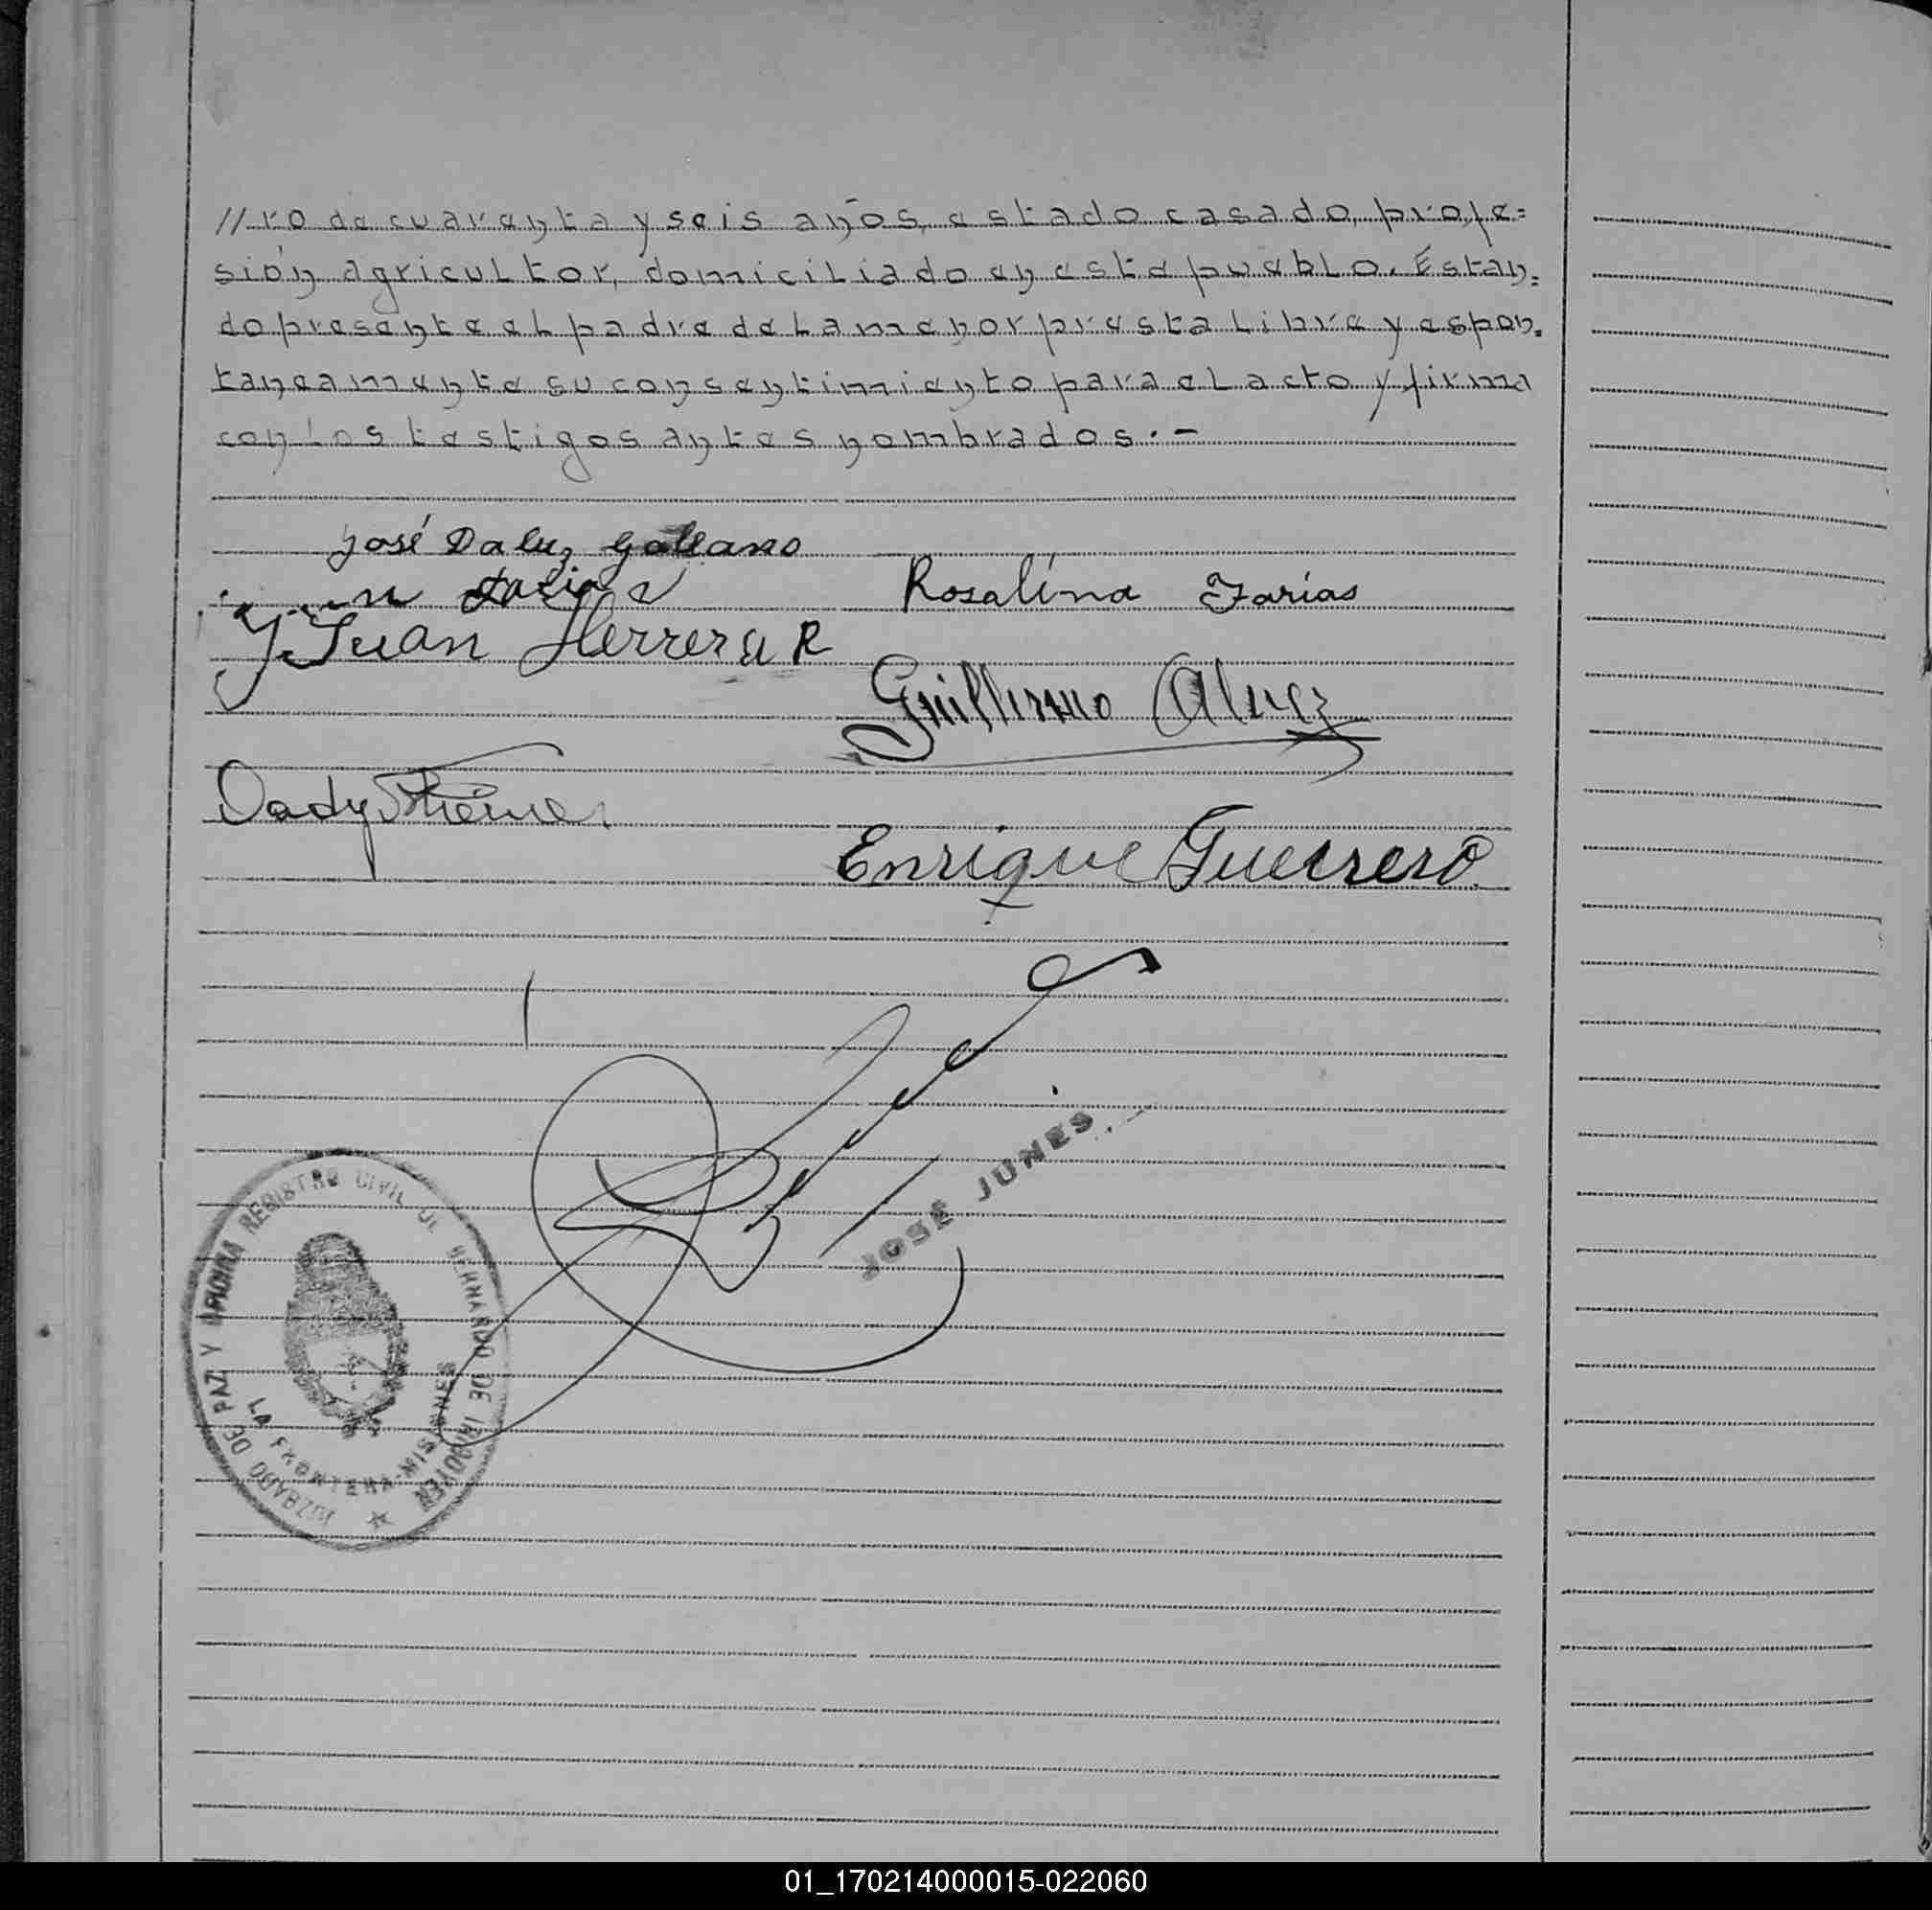 //ro de cuarenta y seis años, estado casado, profe=
sión agricultor, domiciliado en este pueblo. Estan=
do presente el padre de la menor presta libre y espon=
taneamente su consentimiento para el acto y firma
con los testigos antes nombrados.-
José Daluz Galeano
Farias
Rosalína Farias
Juan Herrera R
Guillermo Alvez
Enrique Guerrero
JOSE JUNES
JUZGADO DE PAZ Y OFICINA REGISTRO CIVIL DE HERNANDO DE IRIGOYEN
LA FRONTERA-MISIONES
01_170214000015-022060